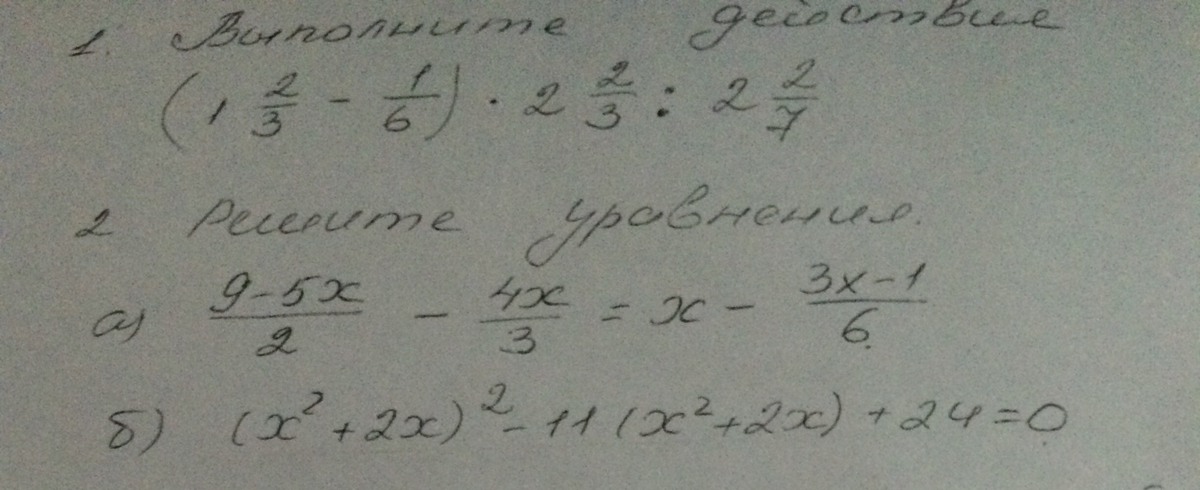 1. Выполните действия
(1 2/3 - 1/6) · 2 2/3 : 2 2/7
2 Решите уравнения.
а) (9-5x)/2 - 4x/3 = x - (3x-1)/6
б) (x² + 2x)² - 11 (x² + 2x) + 24 = 0